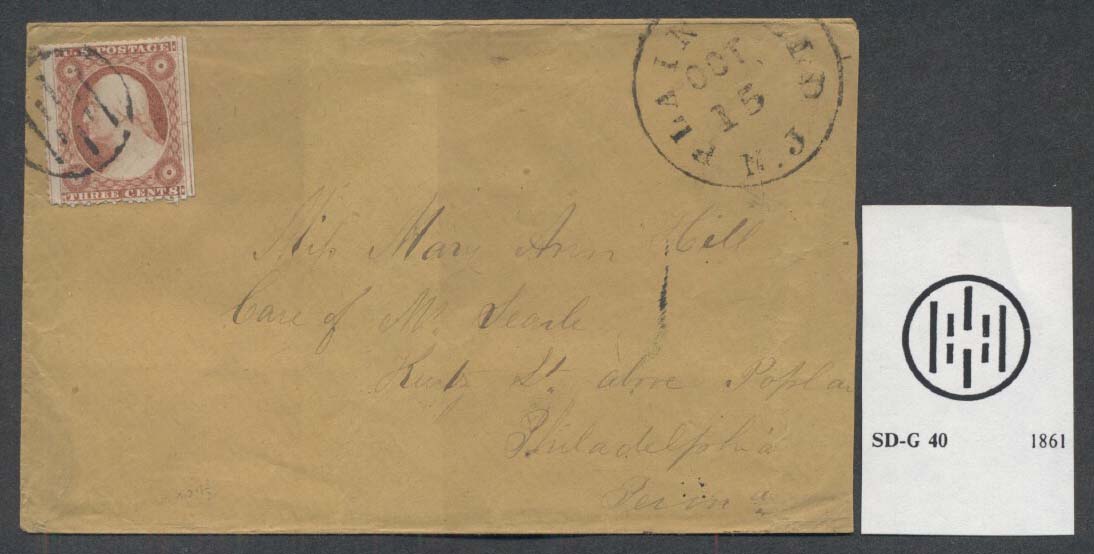 U.S. POSTAGE
THREE CENTS
PLAINFIELD N.J.
OCT.
15
Miss Mary Ann Hill
Care of Mr. Searle
Kurtz St. above Poplar
Philadelphia
Penna
SD-G 40 1861